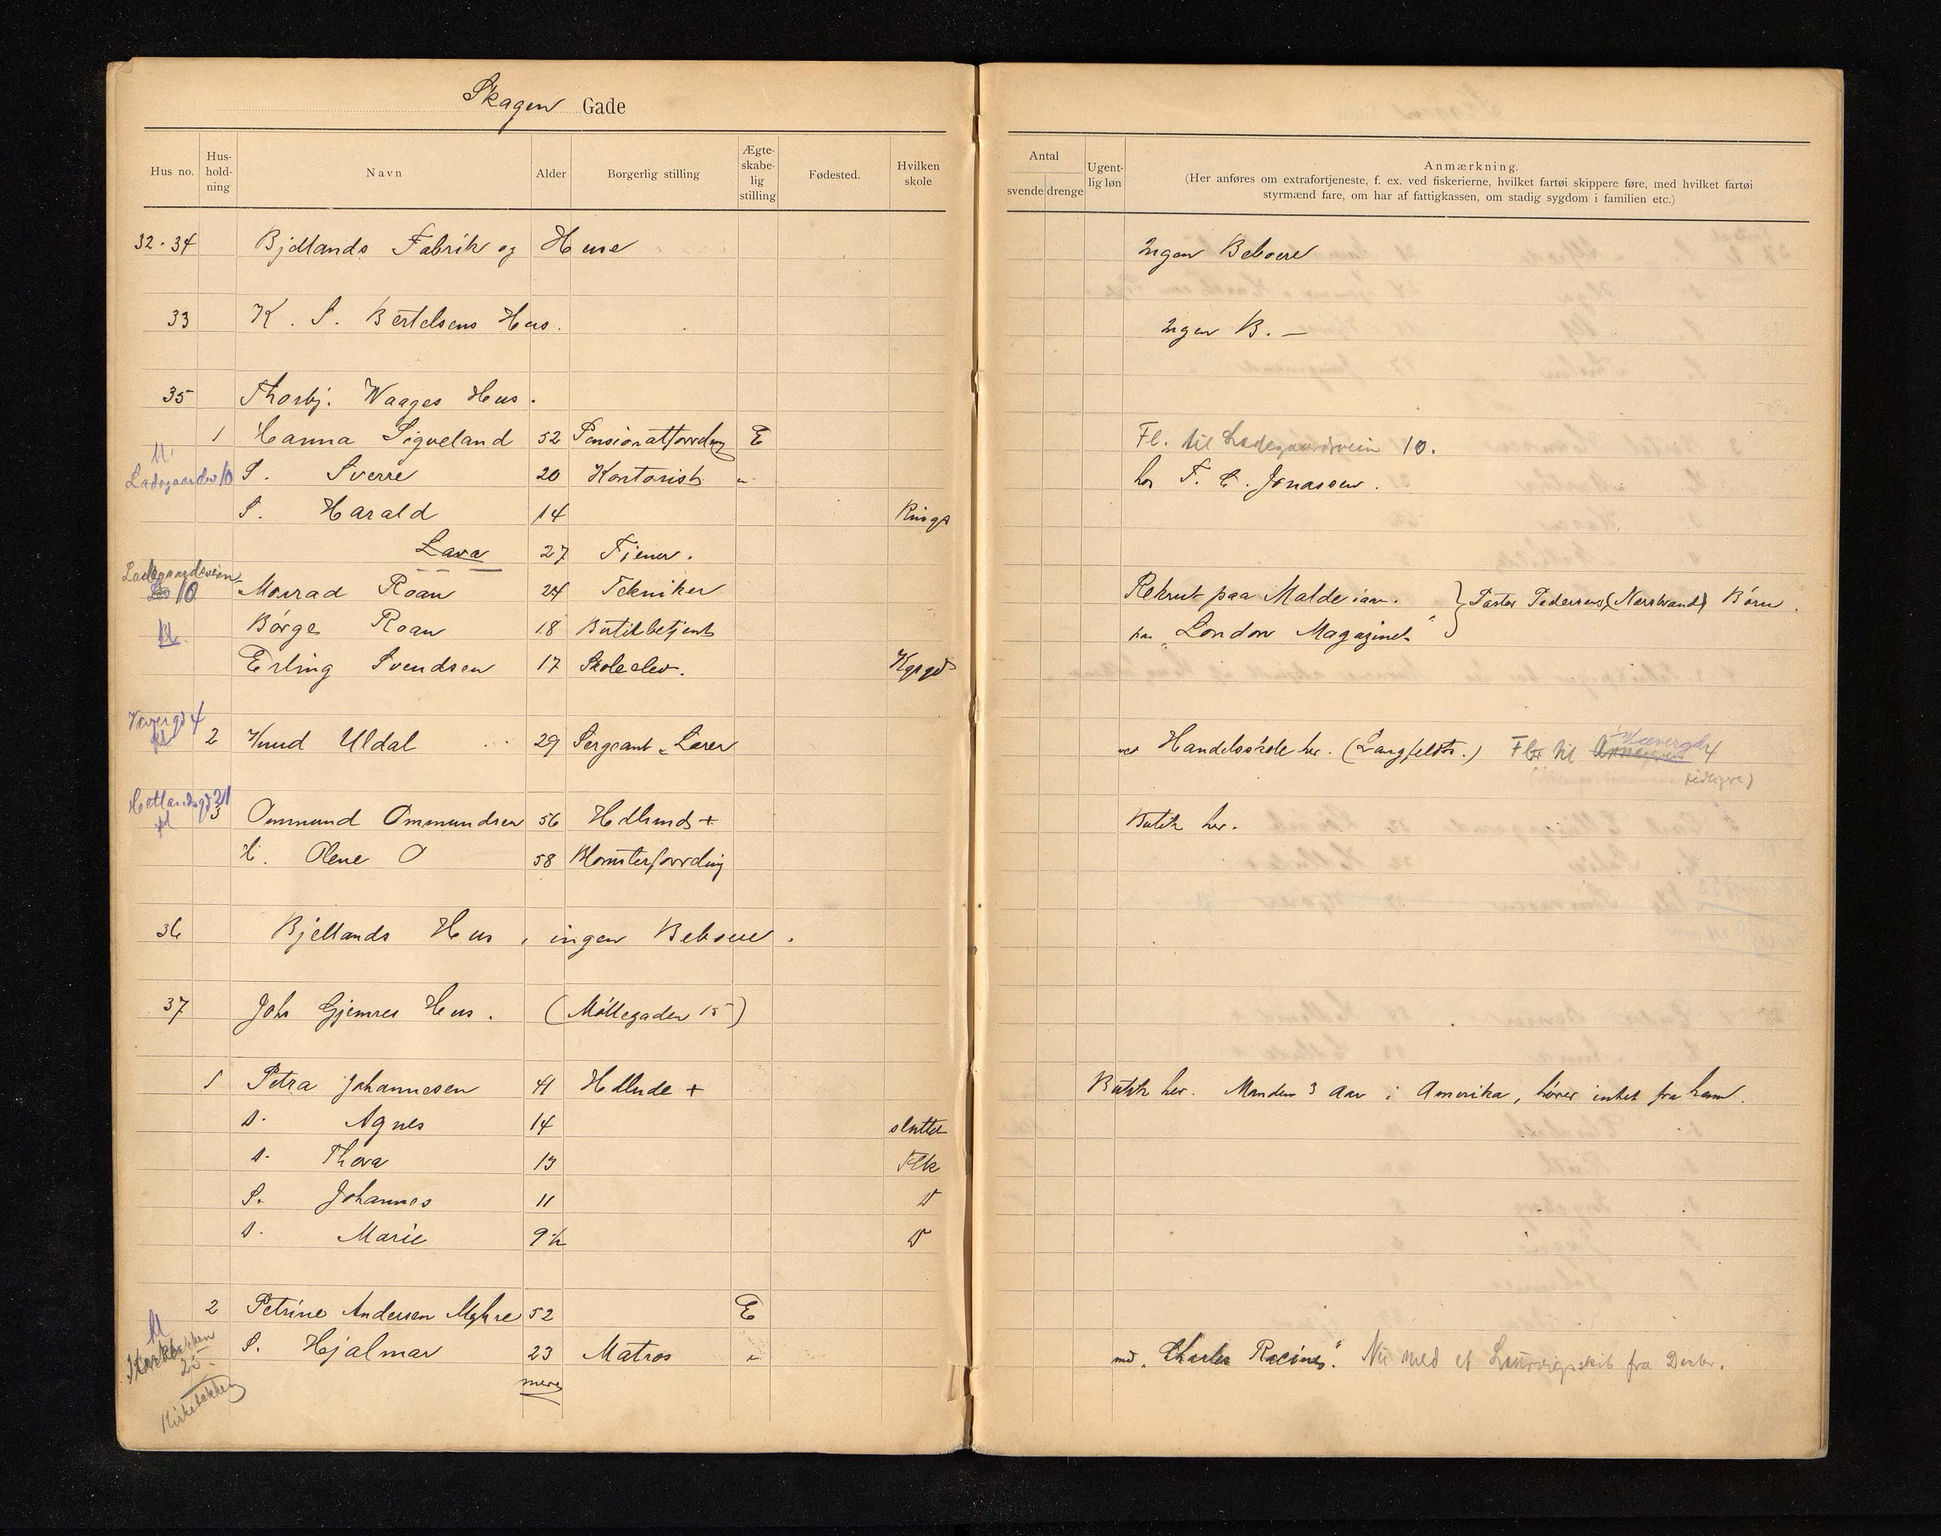 Skagen Gade
Hus no. Hus-hold-ning Navn Alder Borgerlig stilling Ægte-skabe-lig stilling Fødested. Hvilken skole
Antal svende drenge Ugent-lig løn Anmærkning.
(Her anføres om extrafortjeneste, f. ex. ved fiskerierne, hvilket fartøi skippere føre, med hvilket fartøi
styrmænd fare, om har af fattigkassen, om stadig sygdom i familien etc.)
32-34 Bjellands Fabrik og Huse Ingen Beboere
33 K. S. Bertelsens Hus. Ingen B. —
35 Thorbj. Waages Hus.
1 Hanna Sigveland 52 Pensionatforretng E Fl. til Ladegaardsveien 10.
Ladegaardsv 10 S. Sverre 20 Kontorist " hos F. C. Jonassen.
S. Harald 14 Kings
Lava 27 Tjener.
Ladegaardsveien
10 Monrad Roan 24 Tekniker Rekrut paa Malde iaar. } Pastor Pedersens (Nærstrand) Børn.
fl Børge Roan 18 Butikbetjent hos "London Magazinet"
Erling Svendsen 17 Skoleelev. Kgsgd
Vævergd 4
fl 2 Knud Uldal 29 Sergeant, Lærer ved Handelsskole her. (Langfeldts.) Flr til Vævergd 4
Hetlandsgd 21
fl 3 Ommund Ommundsen 56 Hdlende + Butik her.
H. Olene O 58 Blomsterforretning
36 Bjellands Hus, ingen Beboere.
37 Joh Gjemres Hus. (Møllegaden 15)
1 Petra Johannesen 41 Hdlende + Butik her. Manden 3 Aar i Amerika, hører intet fra ham.
D. Agnes 14 sluttet
D. Thora 13 Flk
S. Johannes 11 D
D. Marie 9½ D
2 Petrine Andersen Myhre 52 E
S. Hjalmar 23 Matros " md. "Charles Racines". Nu med et Laurvigsskib fra Decbr.
25.
mere
Kirkebakken